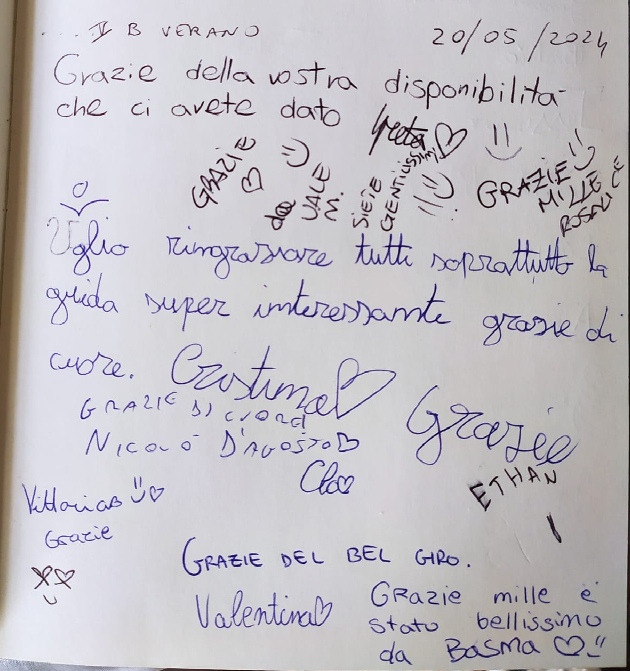 ... II B VERANO
20/05/2024
Grazie della vostra disponibilità
che ci avete dato
Greta
GRAZIE
da VALE M.
SIETE GENTILISSIMI
GRAZIE MILLE
Voglio ringraziare tutti soprattutto la
guida super interessante grazie di
cuore. Cristina
GRAZIE DI CUORE
NICOLÒ D'AGOSTO
Grazie
Clo
ETHAN
Vittoria
Grazie
GRAZIE DEL BEL GIRO.
Valentina
GRazie mille è
stato bellissimo
da BASMA